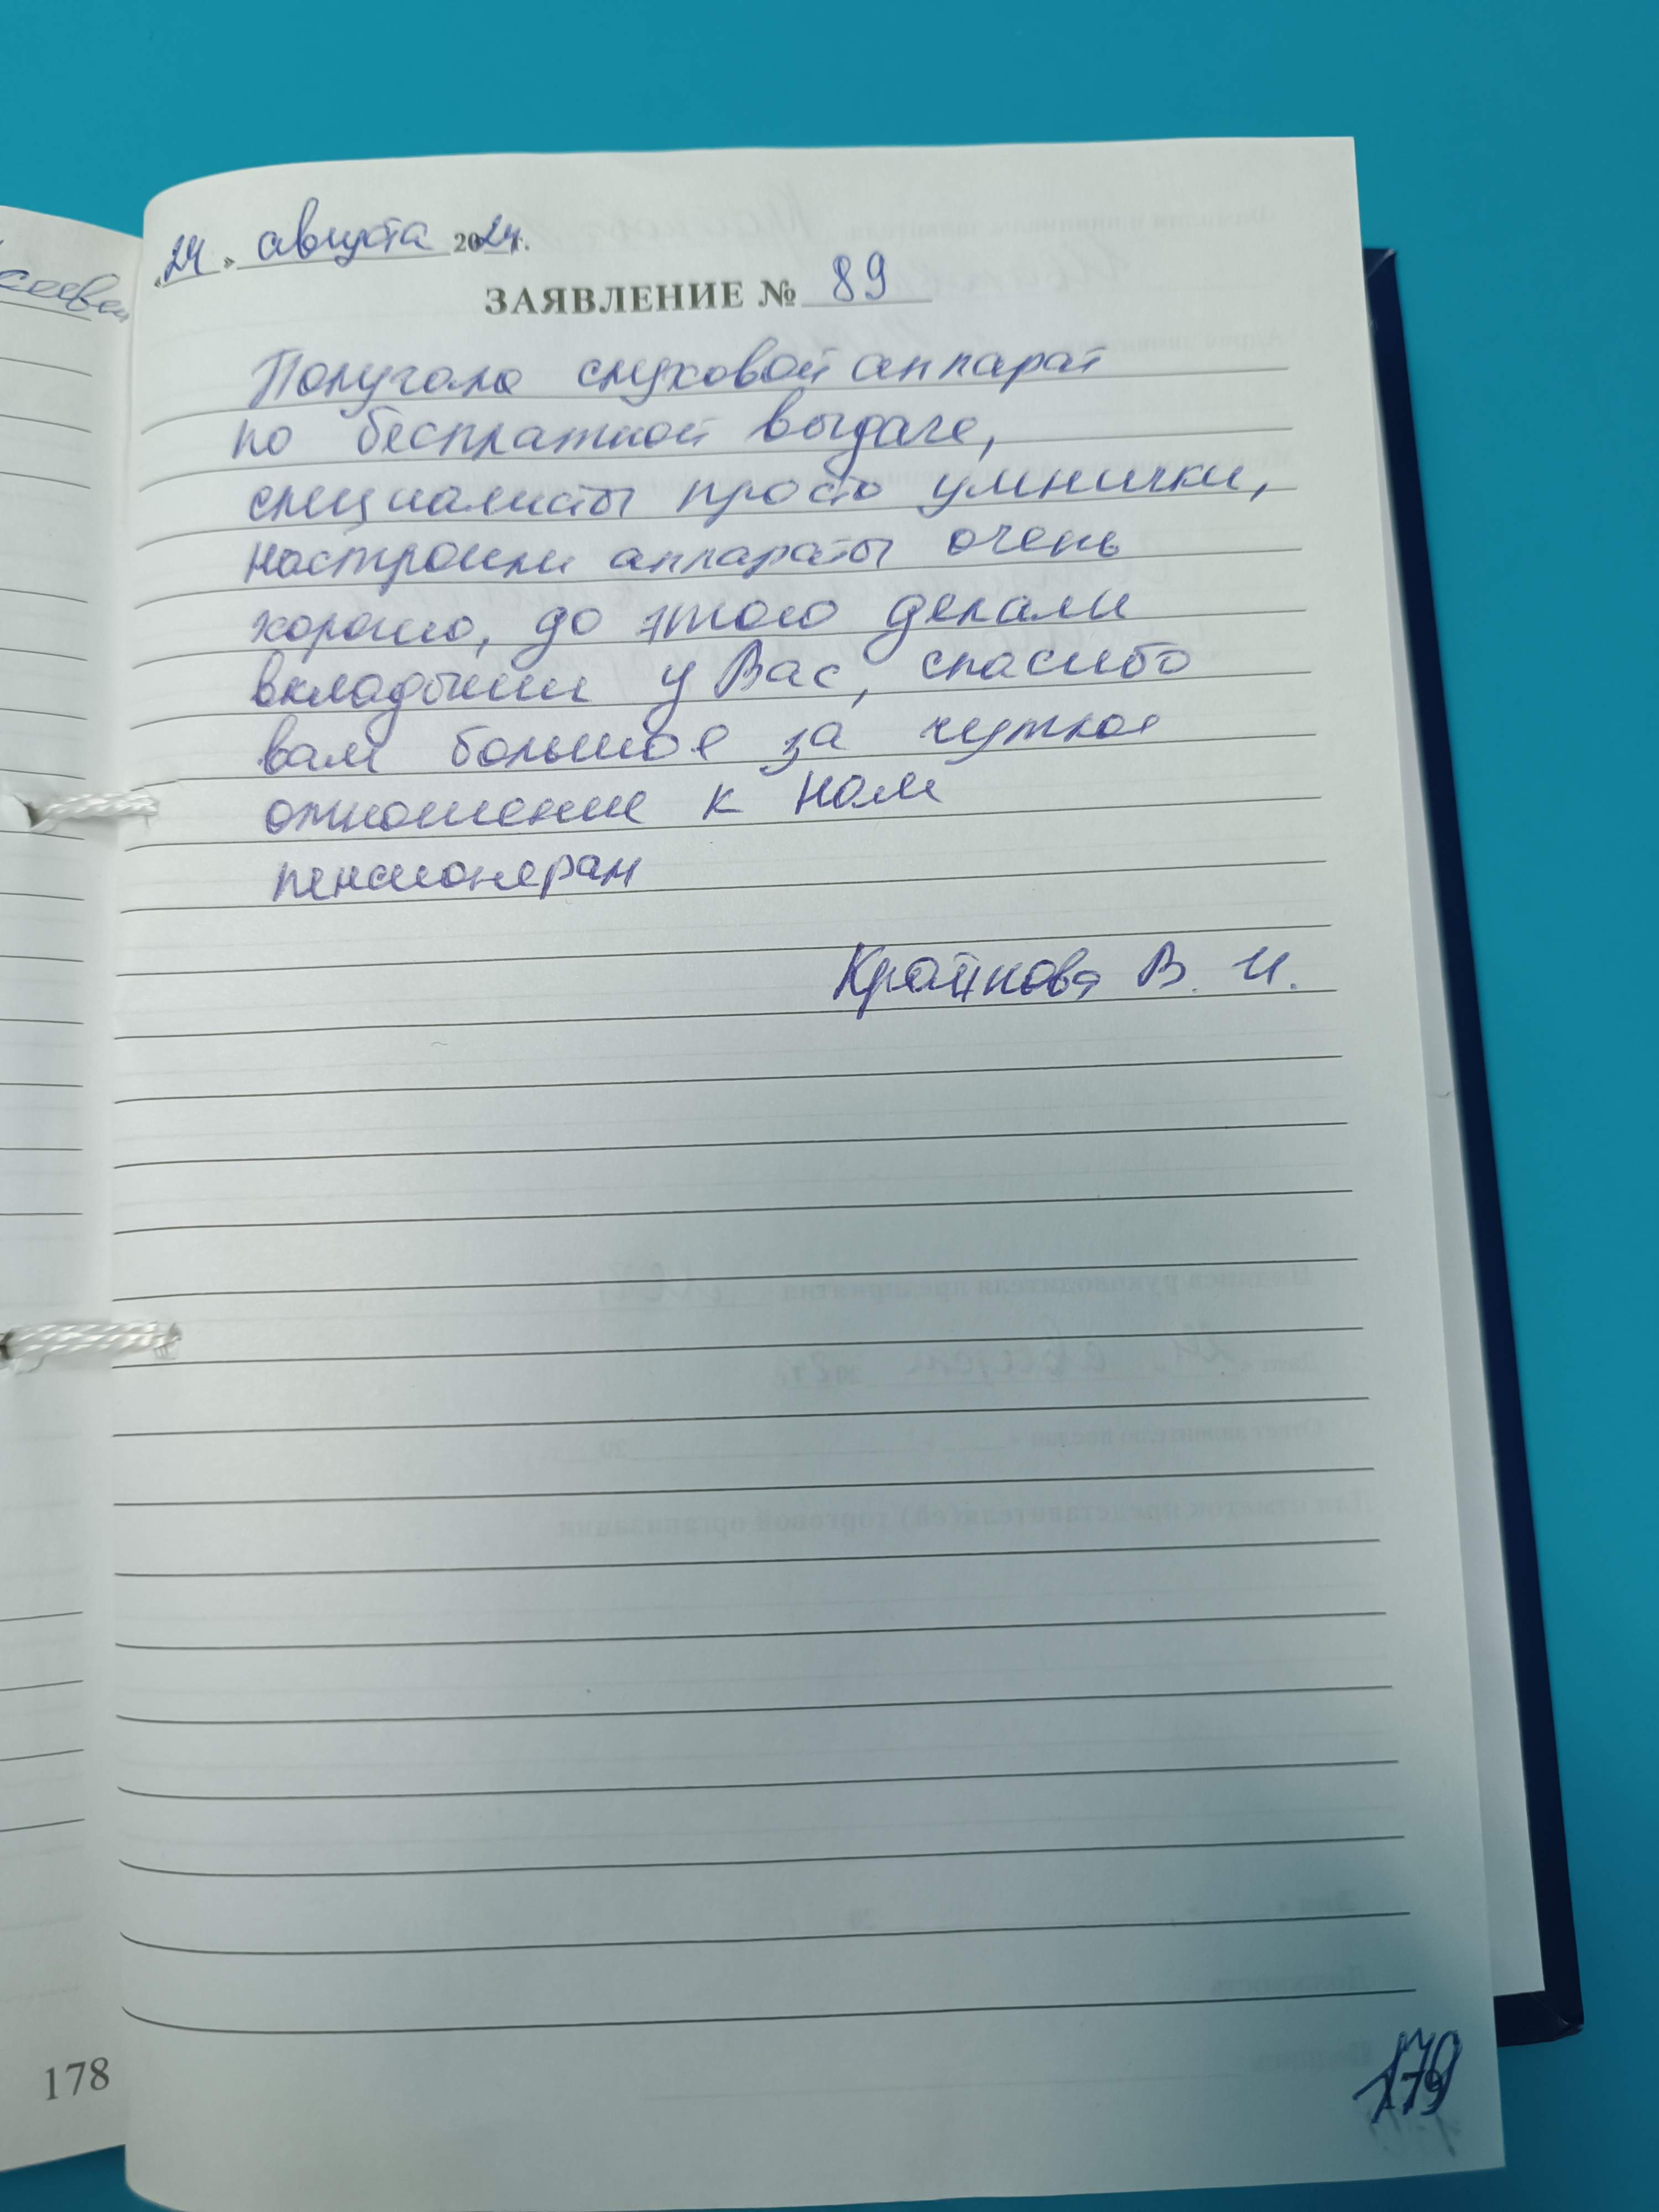 «24» августа 2024г.
ЗАЯВЛЕНИЕ № 89
Получала слуховой аппарат
по бесплатной выдаче,
специалисты просто умнички,
настроили аппараты очень
хорошо, до этого делали
вкладыши у Вас, спасибо
вам большое за чуткое
отношение к нам
пенсионерам
Крайнова В. И.
178
179